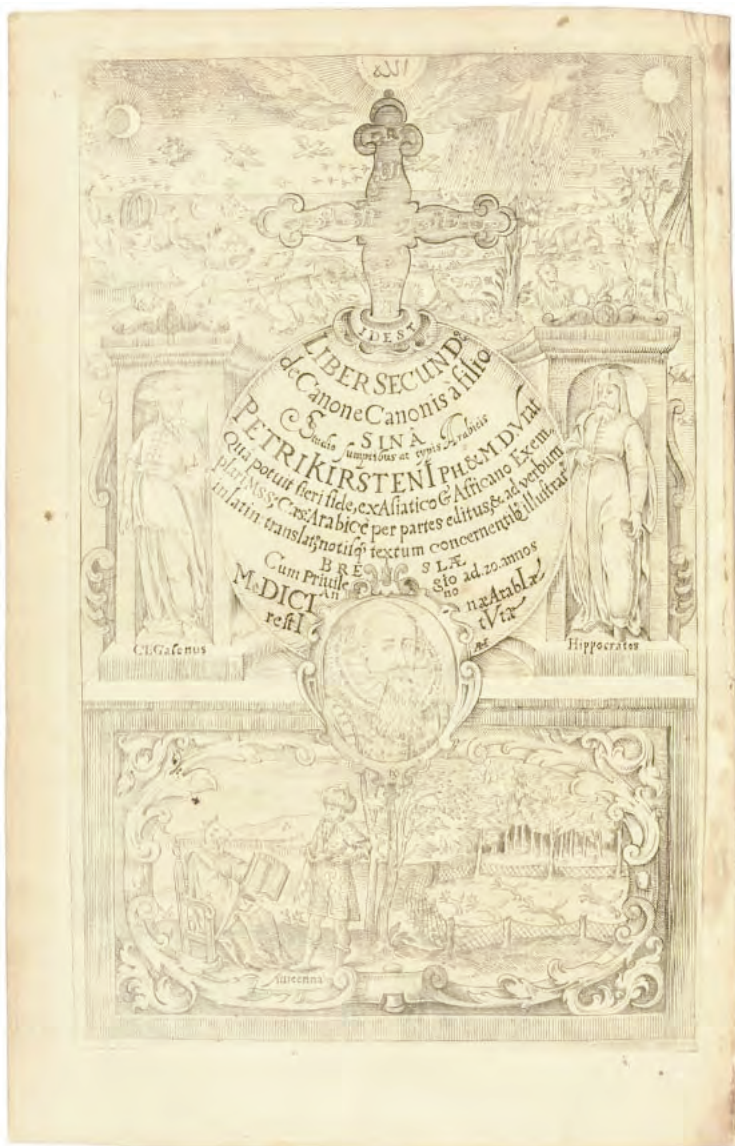 الله
IDEST
LIBER SECUNDꝰ
de Canone Canonis à filio
SINA
Studio sumptibus ac typis Arabicis
PETRI KIRSTENI PH. & M. D
Qua potuit fieri fide, ex Asiatico & Africano Exem,
plari Mss. Arabicè per partes editus, & ad verbum
in latin: translatꝰ, notisq́ꝫ textum concernentibꝰ illustratꝰ
BRESLÆ
Cum Priuilegio ad. 20. annos
Anno
MeDICInæ ArabIæ
restItVtæ
Cl. Galenus
Hippocrates
Auicenna